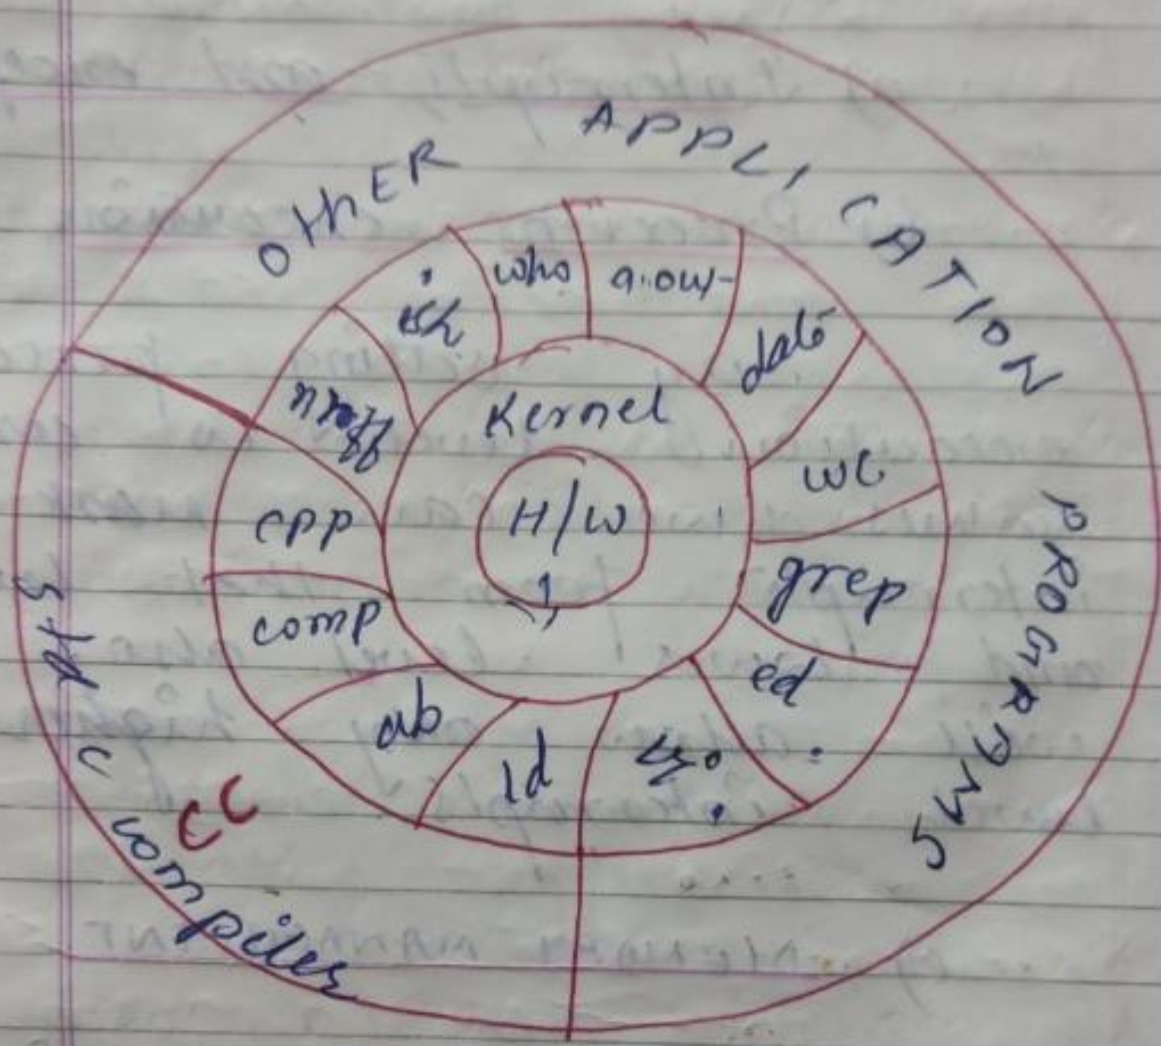 OTHER APPLICATION PROGRAMS
who
a.out
date
wc
grep
ed
vi
ld
ab
comp
cpp
nroff
sh
Kernel
H/W
CC
std c compiler